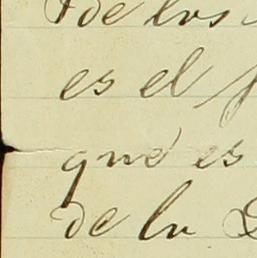 de los
es el
que es
de la